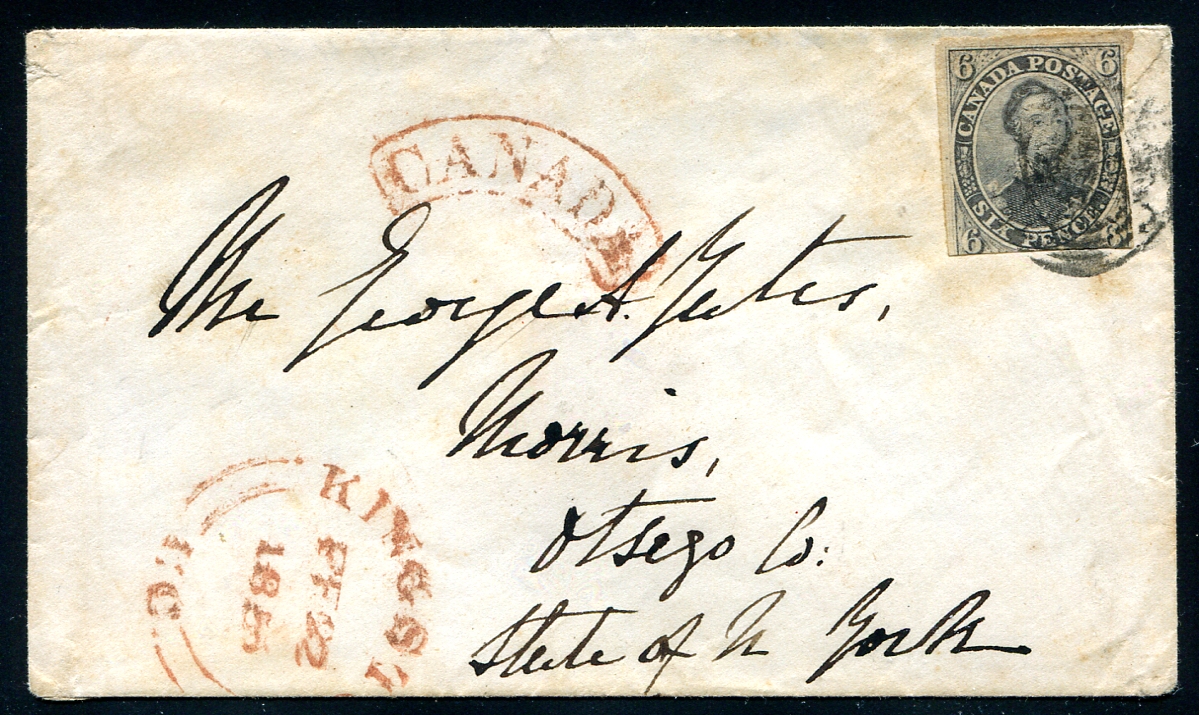 6 CANADA POSTAGE 6
6 SIX PENCE 6
CANADA
Mr George A. Yates,
Morris,
Otsego Co:
State of N York
KINGST
FE 2
185
UC